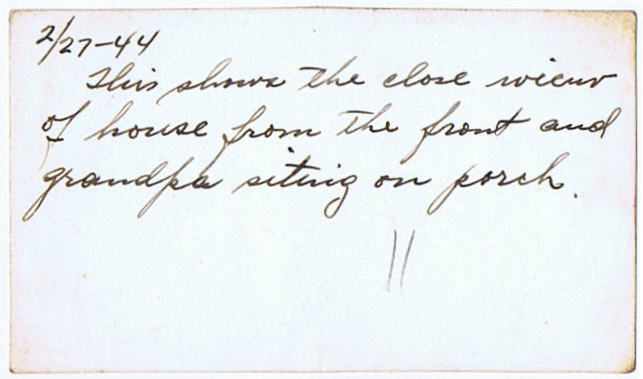 2/27-44
This shows the close wiew
of house from the front and
grandpa siting on porch.
11